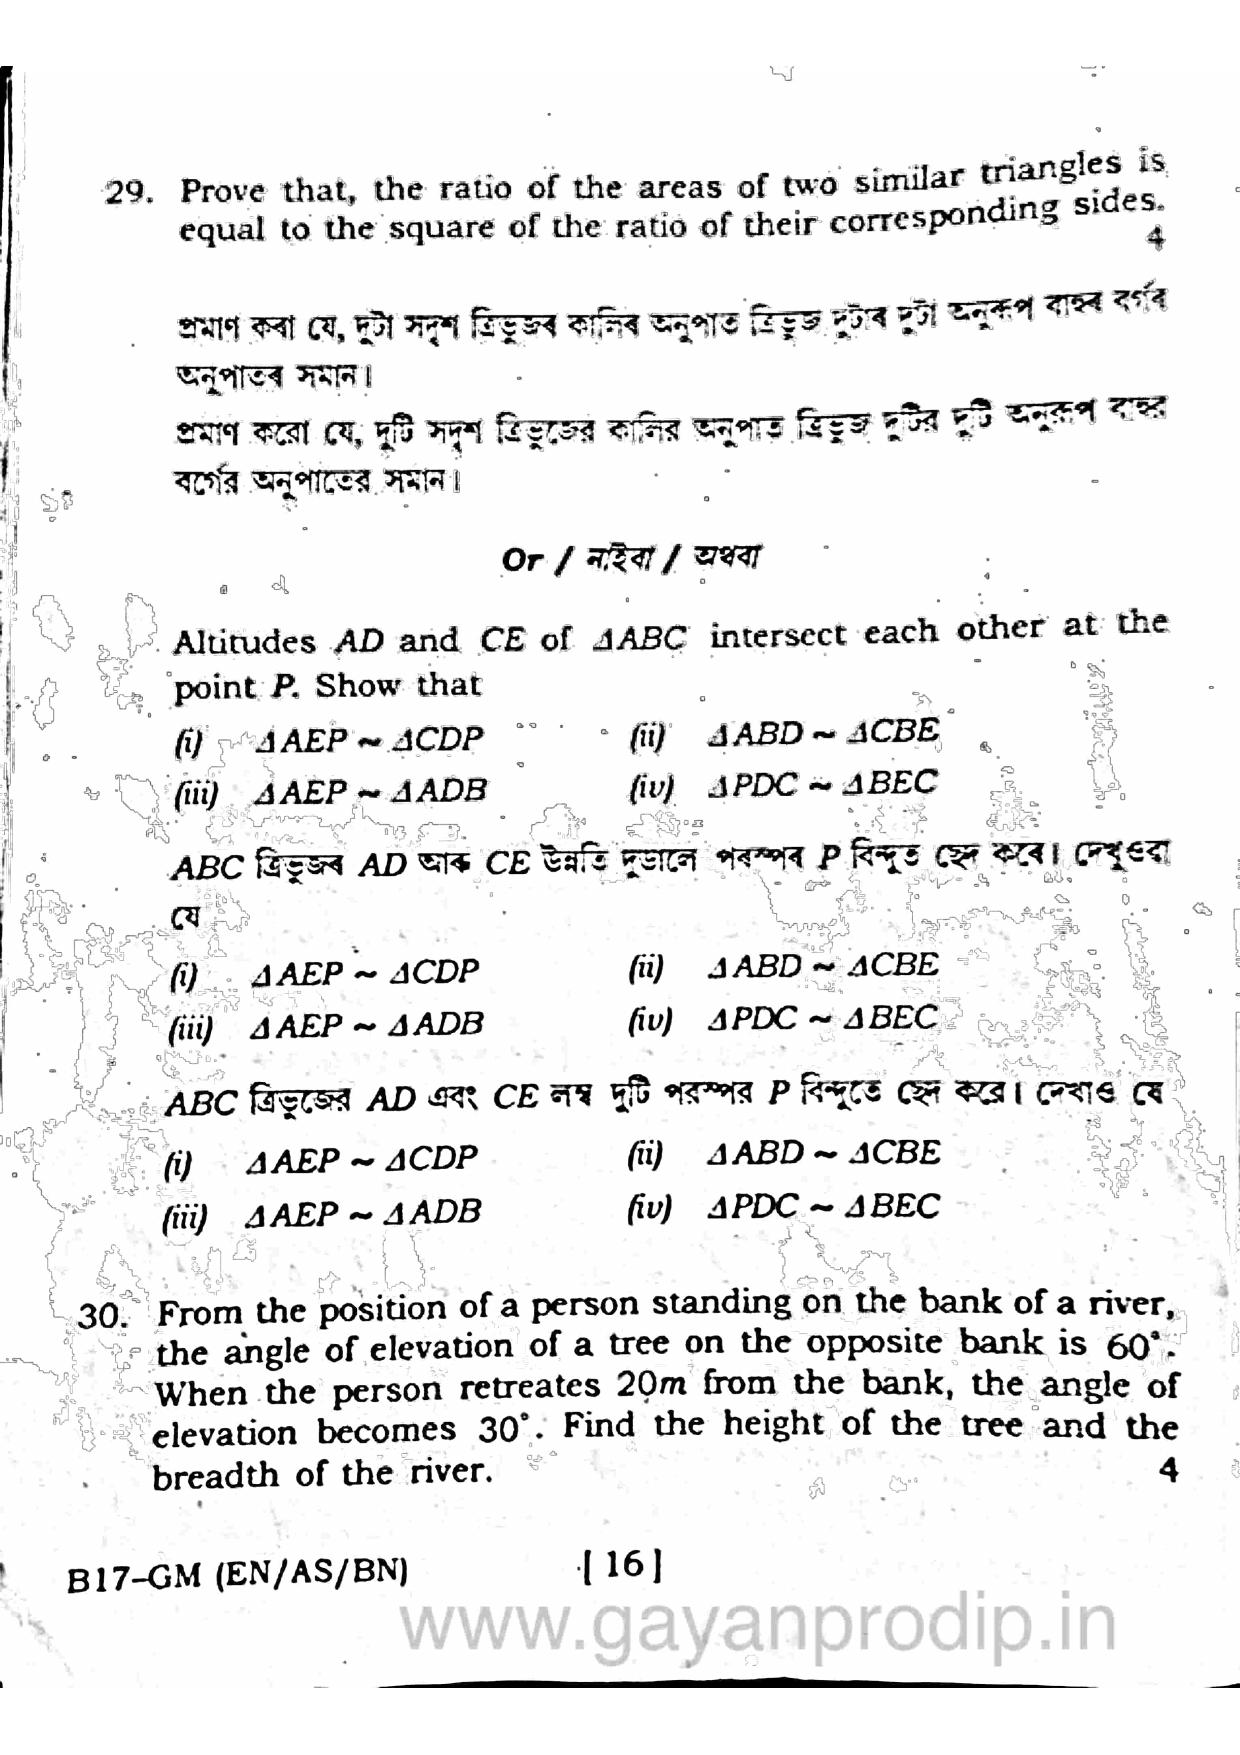 29. Prove that, the ratio of the areas of two similar triangles is
equal to the square of the ratio of their corresponding sides.
4
প্ৰমাণ কৰা যে, দুটা সদৃশ ত্ৰিভুজৰ কালিৰ অনুপাত ত্ৰিভুজ দুটাৰ দুটা অনুৰূপ বাহুৰ বৰ্গৰ
অনুপাতৰ সমান।
প্রমাণ করো যে, দুটি সদৃশ ত্রিভুজের কালির অনুপাত ত্রিভুজ দুটির দুটি অনুরূপ বাহুর
বর্গের অনুপাতের সমান।
Or / নাইবা / অথবা
Altitudes AD and CE of ΔABC intersect each other at the
point P. Show that
(i) ΔAEP ~ ΔCDP (ii) ΔABD ~ ΔCBE
(iii) ΔAEP ~ ΔADB (iv) ΔPDC ~ ΔBEC
ABC ত্ৰিভুজৰ AD আৰু CE উন্নতি দুডালে পৰস্পৰ P বিন্দুত ছেদ কৰে। দেখুওৱা
যে
(i) ΔAEP ~ ΔCDP (ii) ΔABD ~ ΔCBE
(iii) ΔAEP ~ ΔADB (iv) ΔPDC ~ ΔBEC
ABC ত্রিভুজের AD এবং CE লম্ব দুটি পরস্পর P বিন্দুতে ছেদ করে। দেখাও যে
(i) ΔAEP ~ ΔCDP (ii) ΔABD ~ ΔCBE
(iii) ΔAEP ~ ΔADB (iv) ΔPDC ~ ΔBEC
30. From the position of a person standing on the bank of a river,
the angle of elevation of a tree on the opposite bank is 60°.
When the person retreates 20m from the bank, the angle of
elevation becomes 30°. Find the height of the tree and the
breadth of the river. 4
B17-GM (EN/AS/BN) [ 16 ]
www.gayanprodip.in